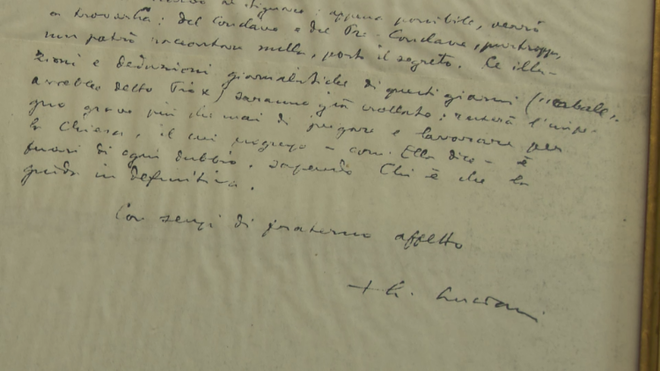 al Signore: appena possibile, verrò
a trovarLa: del Conclave e del Pre-Conclave, purtroppo,
non potrò raccontare nulla, posto il segreto. Le illa-
zioni e deduzioni giornalistiche di questi giorni
avrebbe detto Pio X) saranno già crollate: resterà l'impe-
gno grave più che mai di pregare e lavorare per
la Chiesa, il cui progresso - come Ella dice - è
fuori di ogni dubbio, sapendo Chi è che la
guida in definitiva.
Con sensi di fraterno affetto
+ A. Luciani